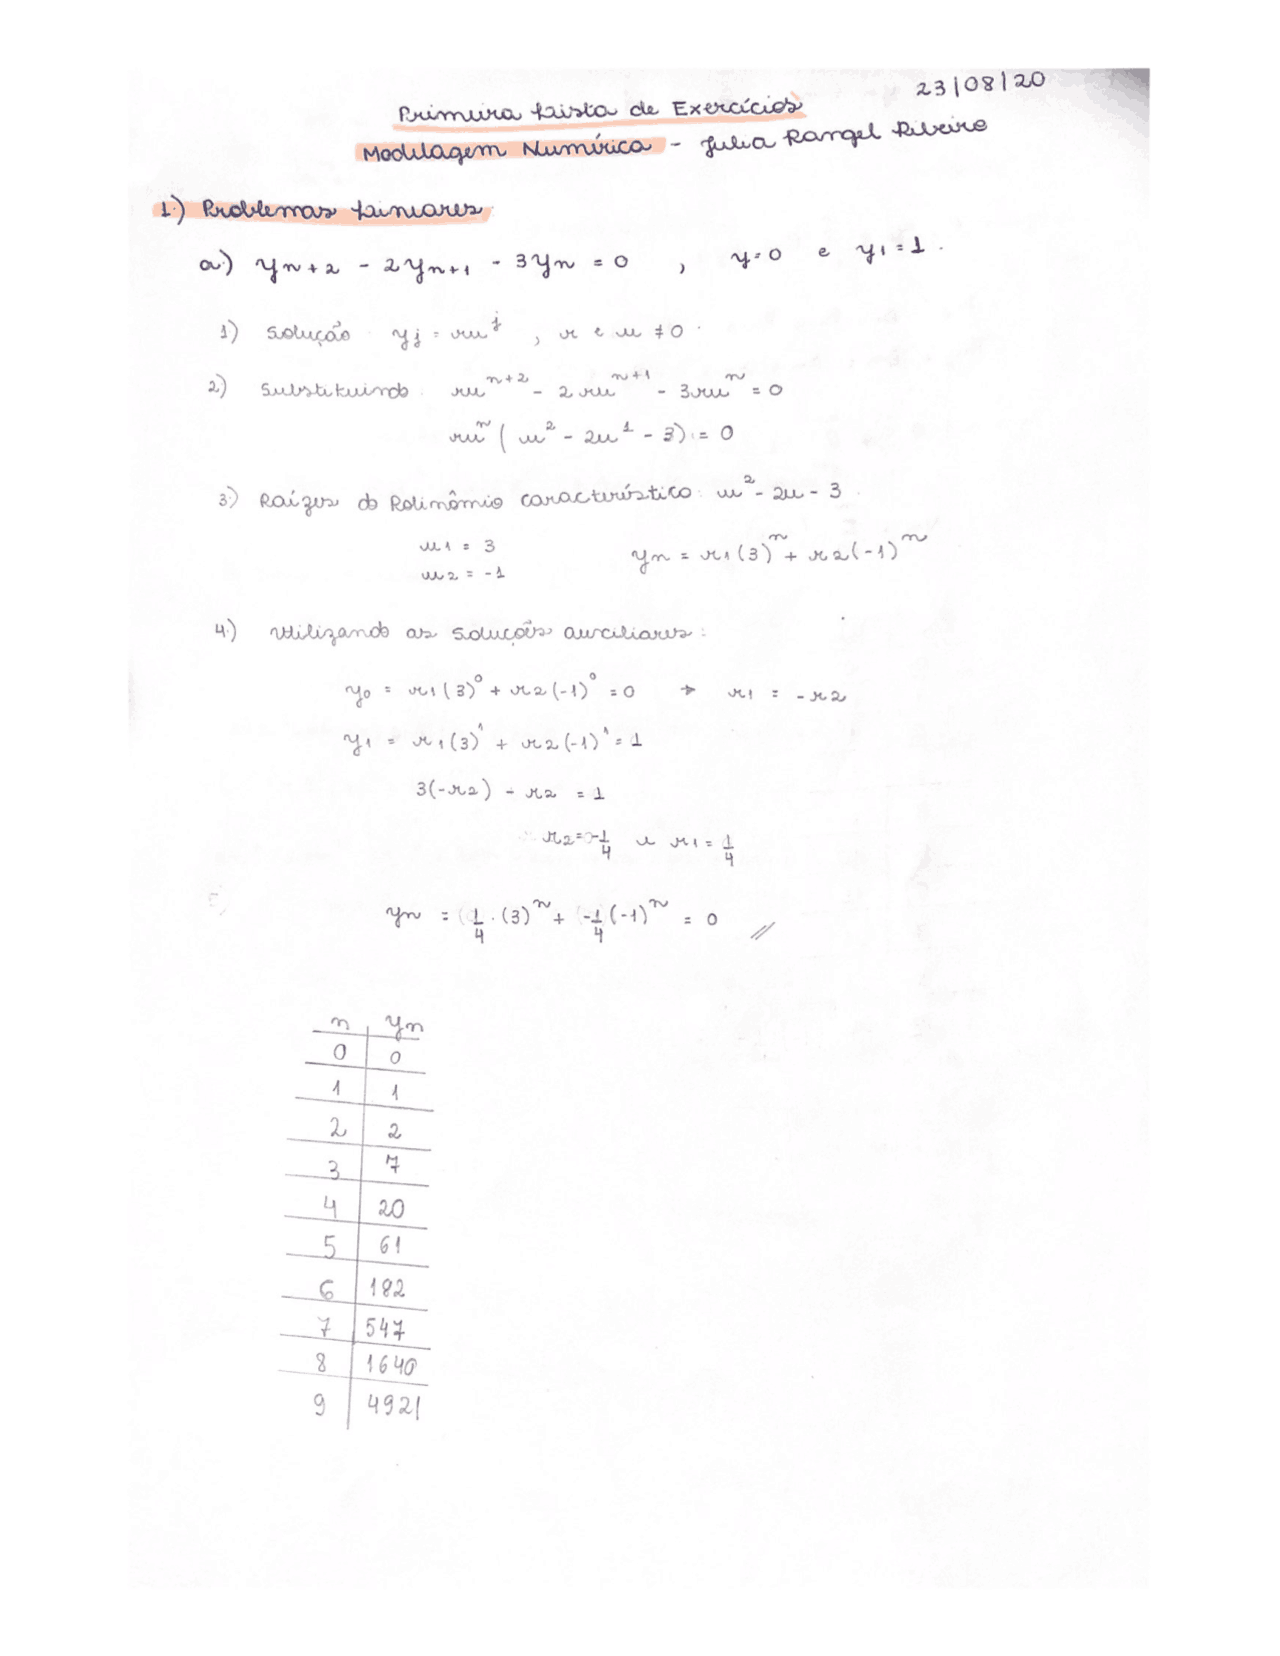 23/08/20
Primeira Lista de Exercícios
Modelagem Numérica - Julia Rangel Ribeiro
1.) Problemas Lineares
a.) yn+2 - 2yn+1 - 3yn = 0 , y=0 e y1 = 1.
1.) Solução. yj = ru^j , r e u ≠ 0.
2.) Substituindo. ru^n+2 - 2ru^n+1 - 3ru^n = 0
ru^n (u^2 - 2u^1 - 3) = 0
3.) Raízes do Polinômio característico: u^2 - 2u - 3.
u1 = 3
u2 = -1
yn = r1(3)^n + r2(-1)^n
4.) Utilizando as soluções auxiliares:
y0 = r1(3)^0 + r2(-1)^0 = 0 → r1 = -r2
y1 = r1(3)^1 + r2(-1)^1 = 1
3(-r2) - r2 = 1
r2 = -1/4 e r1 = 1/4
yn = 1/4 . (3)^n + -1/4 (-1)^n = 0 //
n yn
0 0
1 1
2 2
3 7
4 20
5 61
6 182
7 547
8 1640
9 4921